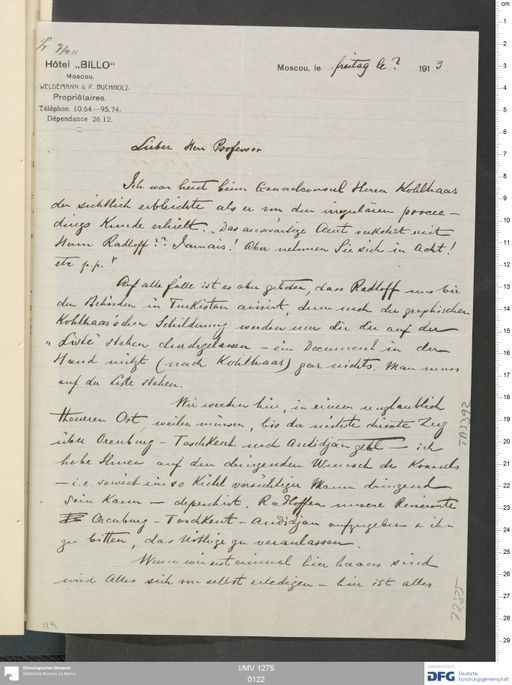 Hôtel „BILLO“
Moscou.
WELDEMANN & P. BUCHHOLZ.
Propriétaires.
Téléphon 10.64—95.74.
Dépendance 26.12.
Moscou, le freitag le ? 1913
Lieber Herr Professor
Ich war heut beim Generalconsul Herrn Kohlhaas
der sichtlich erbleichte als er von den irregulären procee-
dings Kunde erhielt. „Das auswärtige Amt verkehrt mit
Herrn Radloff?? Jamais! Aber nehmen Sie sich in Acht!
etc p.p."
Auf alle Fälle ist es aber geboten, dass Radloff uns bei
den Behörden in Turkistan avisirt, denn nach der graphischen
Kohlhaas'schen Schilderung werden nur die die auf der
„Liste" stehen durchgelassen – ein Document in der
Hand nützt (nach Kohlhaas) gar nichts. Man muss
auf der Liste stehen.
Wir werden hier, in einem unglaublich
theueren Ort, weilen müssen, bis der nächste directe Zug
über Orenburg – Taschkent nach Andidjan geht – ich
habe Ihnen auf den dringenden Wunsch des Konsuls
– i.e. soweit ein so kühl vorsichtiger Mann dringend
sein kann – depeschirt, Radloffen unsere Reiseroute
Orenburg – Taschkent – Andidjan aufzugeben & ihn
zu bitten, das Nöthige zu veranlassen.
Wenn wir erst einmal hier heraus sind
wird Alles sich von selbst erledigen – hier ist alles
TA 5392
119
Ethnologisches Museum
Staatliche Museen zu Berlin
I/MV 1275
0122
DFG
Deutsche
Forschungsgemeinschaft